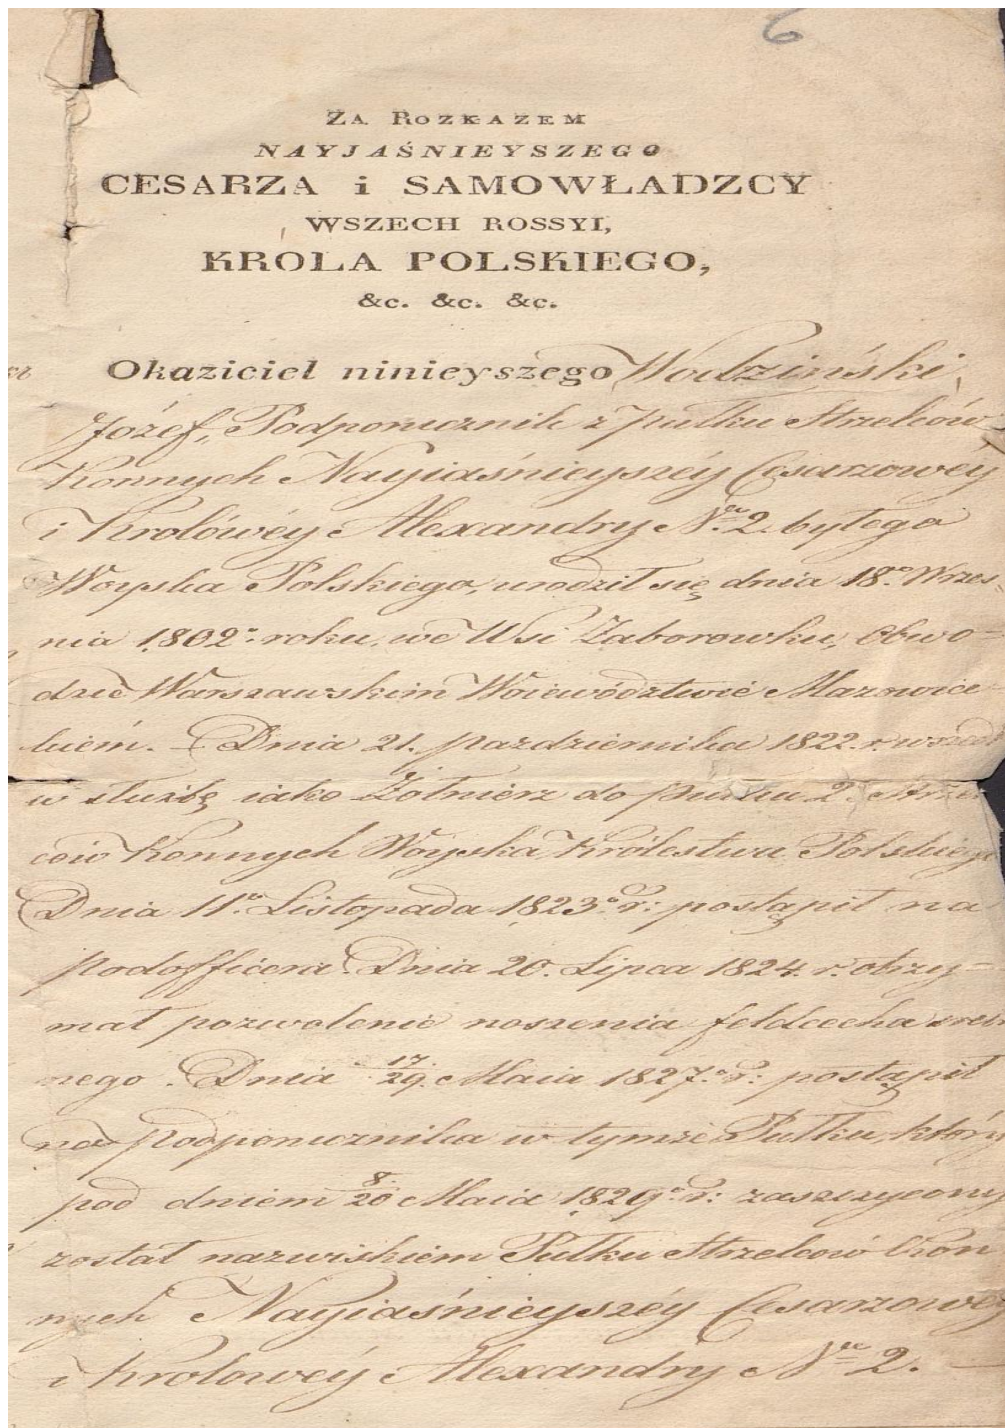 6
ZA ROZKAZEM
NAYJAŚNIEYSZEGO
CESARZA i SAMOWŁADZCY
WSZECH ROSSYI,
KROLA POLSKIEGO,
&c. &c. &c.
Okaziciel ninieyszego Wodziński
Józef, Podporucznik z pułku Strzelców
Konnych Nayiaśnieyszéy Cesarzowéy
i Krolówéy Alexandry No. 2. byłego
Woyska Polskiego, urodził się dnia 18o. Wrześ-
nia 1802o. roku, we Wsi Zaborowku, Obwo-
dzie Warszawskim Woiewództwie Mazowiec-
kiém. Dnia 21. pazdziernika 1822. r. wszedł
w służbę iako Żołnierz do pułku 2o. Strzel-
ców Konnych Woyska Królestwa Polskiego
Dnia 11o. Listopada 1823o. r: postąpił na
podofficera. Dnia 20. Lipca 1824. r. otrzy-
mał pozwolenie noszenia feldcecha sreb-
rnego. Dnia 17./29. Maia 1827.o r: postąpił
na Podporucznika w tymże Pułku, który
pod dniem 8./20 Maia 1829o. r: zaszczycony
został nazwiskiem Pułku Strzelców Kon
nych Nayiaśnieyszéy Cesarzowéy
i Krolowéy Alexandry No. 2. —